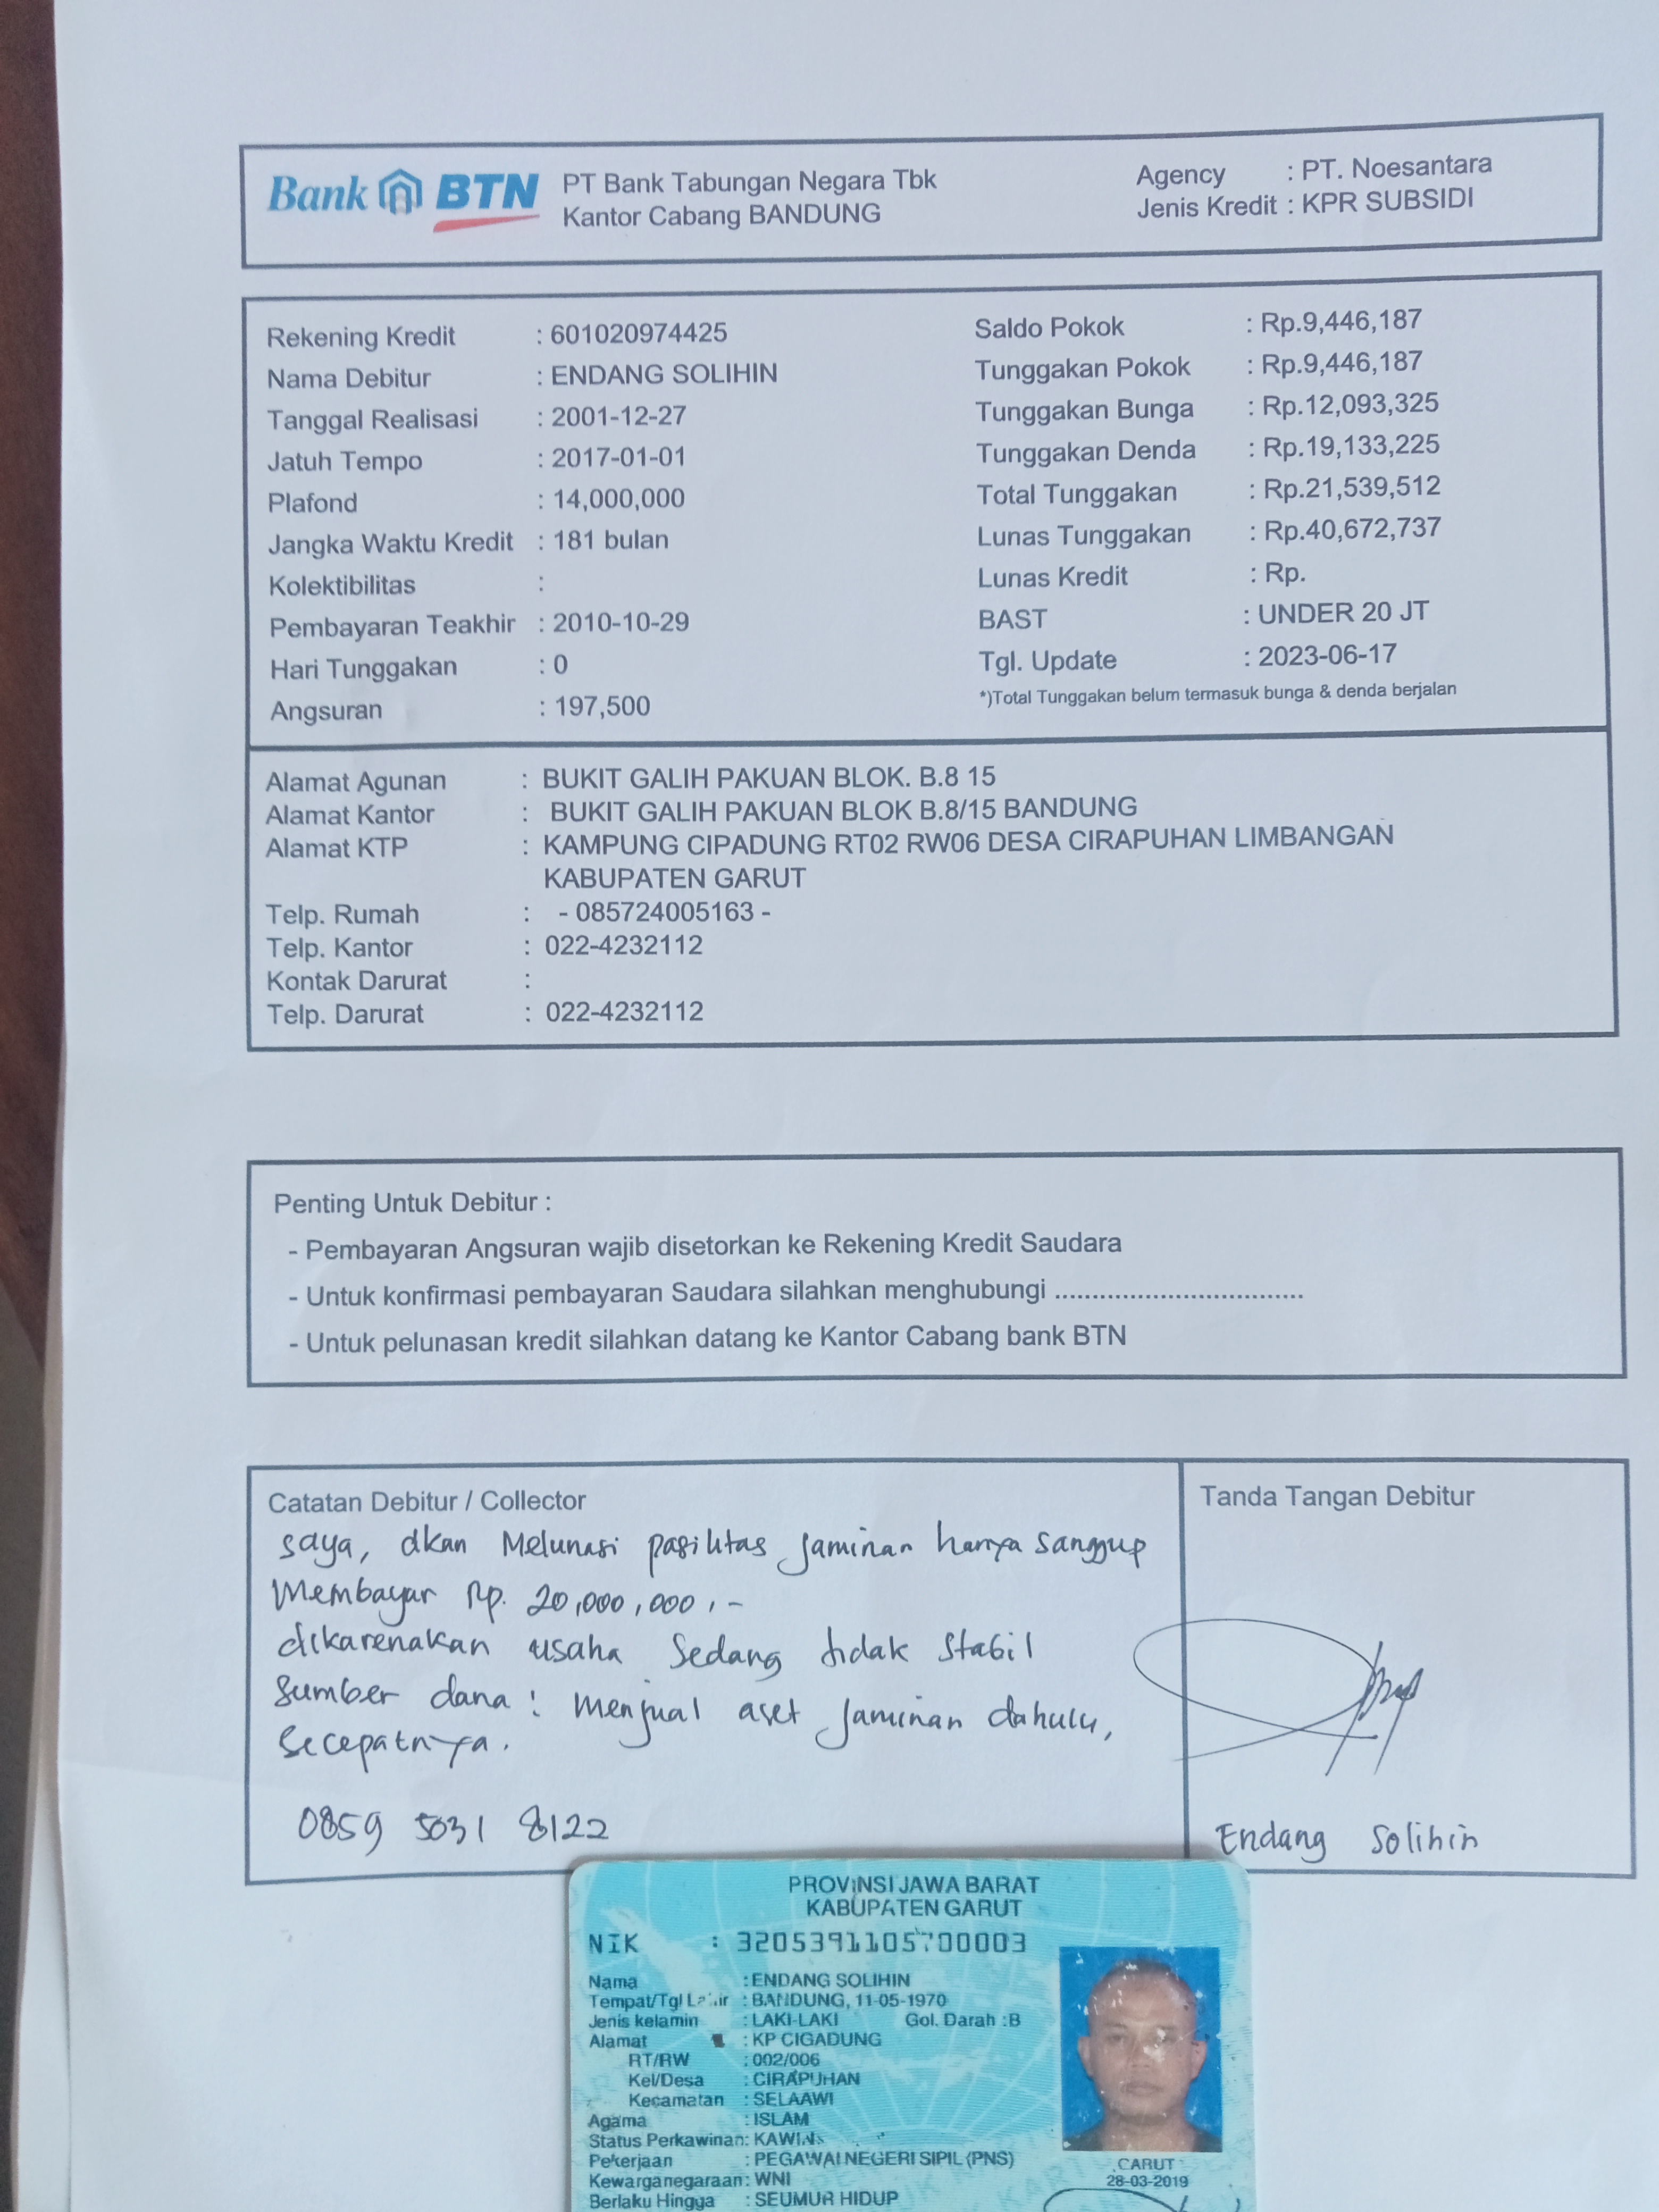 Bank BTN
PT Bank Tabungan Negara Tbk
Kantor Cabang BANDUNG
Agency : PT. Noesantara
Jenis Kredit : KPR SUBSIDI
Rekening Kredit : 601020974425
Nama Debitur : ENDANG SOLIHIN
Tanggal Realisasi : 2001-12-27
Jatuh Tempo : 2017-01-01
Plafond : 14,000,000
Jangka Waktu Kredit : 181 bulan
Kolektibilitas :
Pembayaran Teakhir : 2010-10-29
Hari Tunggakan : 0
Angsuran : 197,500
Saldo Pokok : Rp.9,446,187
Tunggakan Pokok : Rp.9,446,187
Tunggakan Bunga : Rp.12,093,325
Tunggakan Denda : Rp.19,133,225
Total Tunggakan : Rp.21,539,512
Lunas Tunggakan : Rp.40,672,737
Lunas Kredit : Rp.
BAST : UNDER 20 JT
Tgl. Update : 2023-06-17
*)Total Tunggakan belum termasuk bunga & denda berjalan
Alamat Agunan : BUKIT GALIH PAKUAN BLOK. B.8 15
Alamat Kantor : BUKIT GALIH PAKUAN BLOK B.8/15 BANDUNG
Alamat KTP : KAMPUNG CIPADUNG RT02 RW06 DESA CIRAPUHAN LIMBANGAN
KABUPATEN GARUT
Telp. Rumah : - 085724005163 -
Telp. Kantor : 022-4232112
Kontak Darurat :
Telp. Darurat : 022-4232112
Penting Untuk Debitur :
- Pembayaran Angsuran wajib disetorkan ke Rekening Kredit Saudara
- Untuk konfirmasi pembayaran Saudara silahkan menghubungi ..................................
- Untuk pelunasan kredit silahkan datang ke Kantor Cabang bank BTN
Catatan Debitur / Collector
saya, akan Melunasi pasilitas Jaminan hanya sanggup
Membayar Rp. 20,000,000,-
dikarenakan usaha Sedang tidak Stabil
Sumber dana : Menjual aset Jaminan dahulu,
Secepatnya.
0859 5031 8122
Tanda Tangan Debitur
Endang Solihin
PROVINSI JAWA BARAT
KABUPATEN GARUT
NIK : 3205391105700003
Nama : ENDANG SOLIHIN
Tempat/Tgl Lahir : BANDUNG, 11-05-1970
Jenis kelamin : LAKI-LAKI Gol. Darah :B
Alamat : KP CIGADUNG
RT/RW : 002/006
Kel/Desa : CIRAPUHAN
Kecamatan : SELAAWI
Agama : ISLAM
Status Perkawinan: KAWIN
Pekerjaan : PEGAWAI NEGERI SIPIL (PNS)
Kewarganegaraan: WNI
Berlaku Hingga : SEUMUR HIDUP
GARUT
28-03-2019